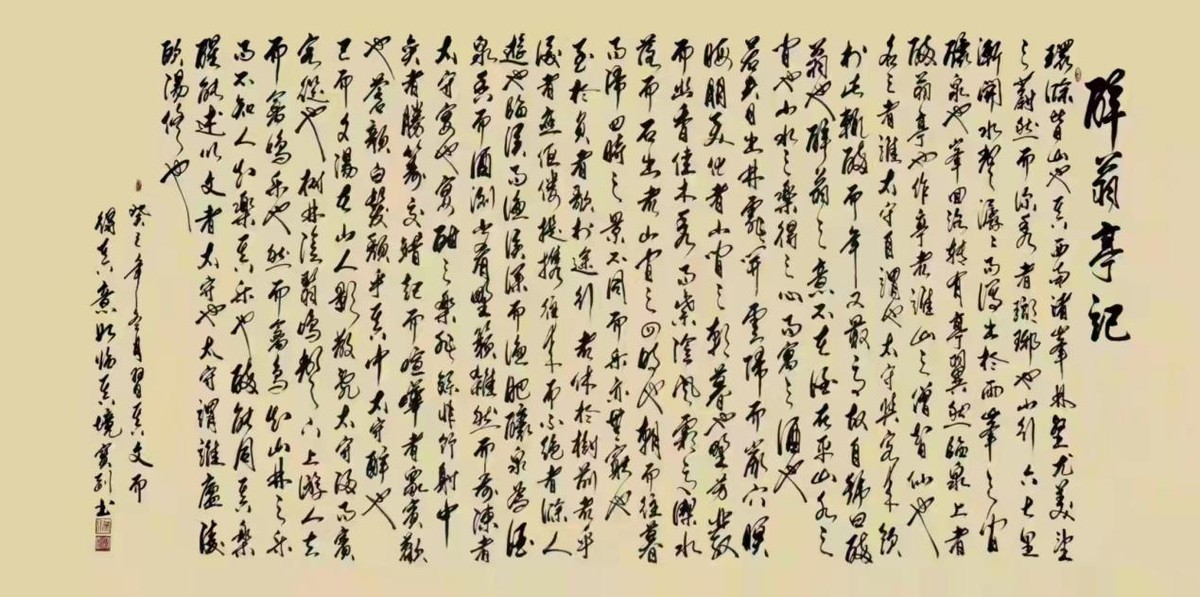 醉翁亭記
環滁皆山也其西南諸峯林壑尤美望
之蔚然而深秀者瑯琊也山行六七里
漸聞水聲潺潺而瀉出於兩峯之間
釀泉也峯回路轉有亭翼然臨泉上者
醉翁亭也作亭者誰山之僧智仙也
名之者誰太守自謂也太守與客來飲
於此輒醉而年又最高故自號曰醉
翁也醉翁之意不在酒在乎山水之
間也山水之樂得之心而寓之酒也
若夫日出林霏開雲歸而巖穴暝
晦明變化者山間之朝暮也野芳發
而幽香佳木秀而繁陰風霜高潔水
落而石出者山間之四時也朝而往暮
而歸四時之景不同而樂亦無窮也
至於負者歌於途行者休於樹前者乎
後者應傴僂提攜往來而不絕者滁人
遊也臨溪而漁溪深而漁肥釀泉為酒
泉香而酒洌山肴野蔌雜然而前陳者
太守宴也宴酣之樂非絲非竹射中
弈者勝籌交錯起而喧嘩者眾賓歡
也蒼顏白髮頹乎其中太守醉也
已而夕陽在山人影散亂太守歸而賓
客從也樹林陰翳鳴聲下上遊人去
而禽鳥樂也然而禽鳥知山林之樂
而不知人知樂其樂也醉能同其樂
醒能述以文者太守也太守謂誰廬陵
歐陽修也
癸巳年月習其文而
得其意如臨其境書